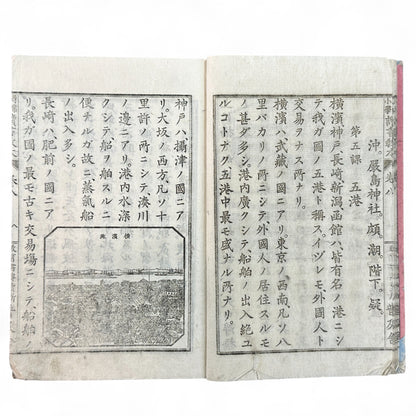 沖。嚴島神社。頗。潮。階下。疑。
第五課　五港
橫濱神戸長崎新潟函館ハ、皆有名ノ港ニシ
テ、我ガ國ノ五港ト稱ス、イヅレモ外國人ト
交易ヲナス所ナリ。
橫濱ハ、武藏ノ國ニアリ。東京ノ西南凡ソ八
里バカリノ所ニシテ、外國人ノ居住スルモ
ノ甚ダ多シ。港内廣クシテ、船舶ノ出入絶ユ
ルコトナク、五港中最モ盛ナル所ナリ。
神戸ハ、攝津ノ國ニア
リ。大坂ノ西方凡ソ十
里許ノ所ニシテ、湊川
ノ邊ニアリ。港内水深
クシテ、船ヲ泊スルニ
便ナルガ故ニ、蒸氣船
ノ出入多シ。
長崎ハ、肥前ノ國ニア
リ。我ガ國ノ最モ古キ交易場ニシテ、船舶ノ
橫濱港